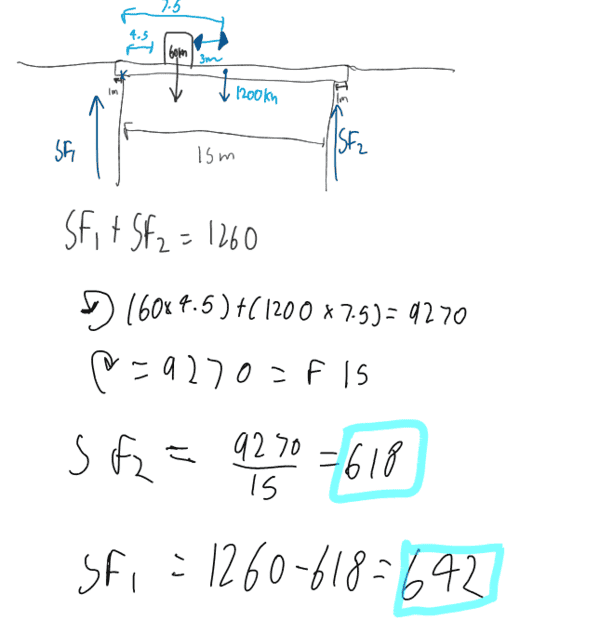 7.5
4.5
60m
3m
1m
1200kn
1m
SF1
15m
SF2
SF1 + SF2 = 1260
(60x4.5)+(1200x7.5)=9270
= 9270 = F 15
SF2 = 9270/15 = 618
SF1 = 1260-618= 642